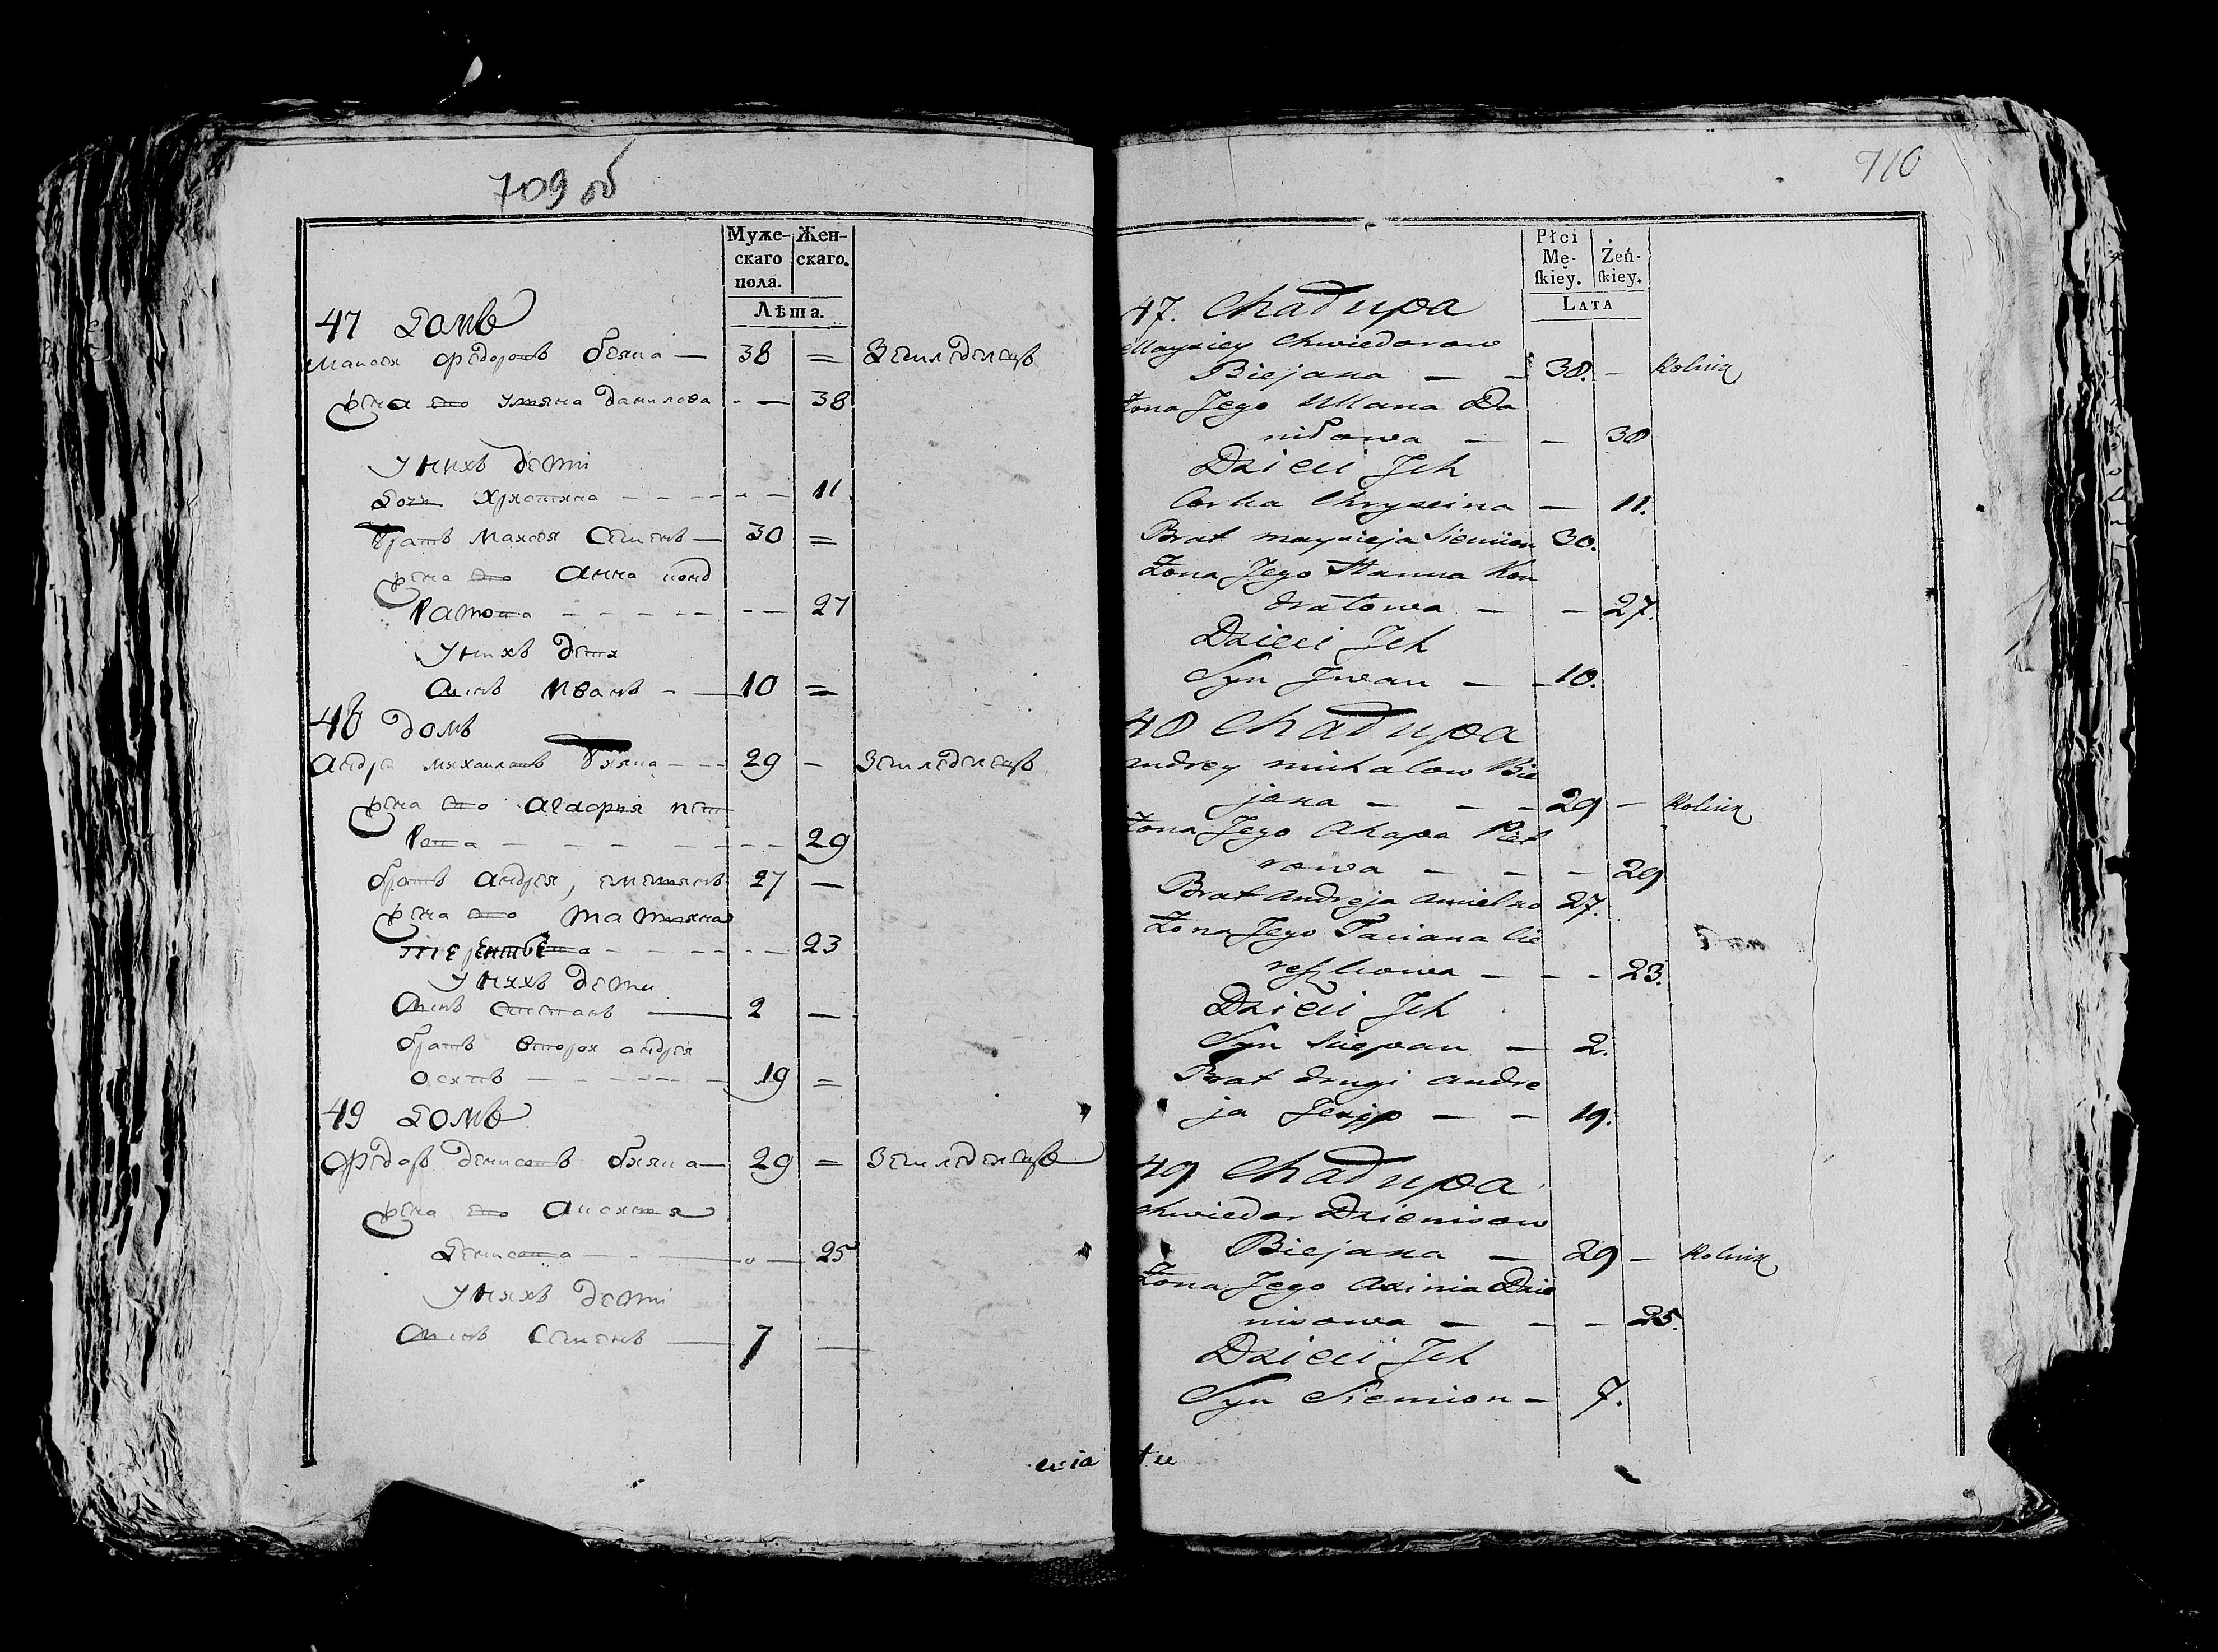 709 об
Муже-
скаго
пола.
Жен-
скаго.
Лѣта.
47 домъ
Мойсей Федоровъ Беяна — 38 = Земледелецъ
жена его Уляна данилова - — 38
У нихъ дети
Дочь Христина - - - - - — 11
братъ Мойсея Семенъ — 30 =
жена его Анна конд
ратова - - - - - - — 27
У нихъ дети
Сынъ Иванъ - — 10 =
48 домъ
Андрей Михайловъ Бияна - - 29 - Земледелецъ
жена его Агафия пет
рова - - - - - - 29
братъ Андрея, емельянъ 27 —
жена его татияна
терентьева - - - - - - — 23
У нихъ дети
Сынъ Степанъ — 2 —
братъ второй андрея
Осипъ - - - - - - 19 =
49 домъ
Федоръ денисовъ бияна — 29 = Земледелецъ
жена его Аксиния
Денисова - - — 25
У нихъ дети
Сынъ Семенъ — 7 —
710
Płci
Mę-
ſkiey.
Żeń-
ſkiey.
LATA
47. Chałupa
Mayziey Chwiedorow
Biejana — - 38. - Rolnik
Żona Jego Ullana Da
niłowa — — 38
Dzieci Jch
Corka Chryscina — 11.
Brat mayzieja Siemion 30.
Żona Jego Hanna Kon
dratowa — - 27.
Dzieci Jch
Syn Jwan — - 10.
48 Chałupa
andrey michałow Bie
jana — - - 29 - Rolnik
Żona Jego Ahapa Piet
rowa — - - 29
Brat andreja amielko 27.
Żona Jego Taciana Cie
reſzkowa — - - 23.
Dzieci Jch
Syn Sciepan — 2.
Brat drugi andre
ja Jezyp — - 19.
49 Chałupa
chwiedor Dzienisow
Biejana — 29 - Rolnik
Żona Jego axinia Dzie
nisowa — - - 25.
Dzieci Jch
Syn Siemion - 7.